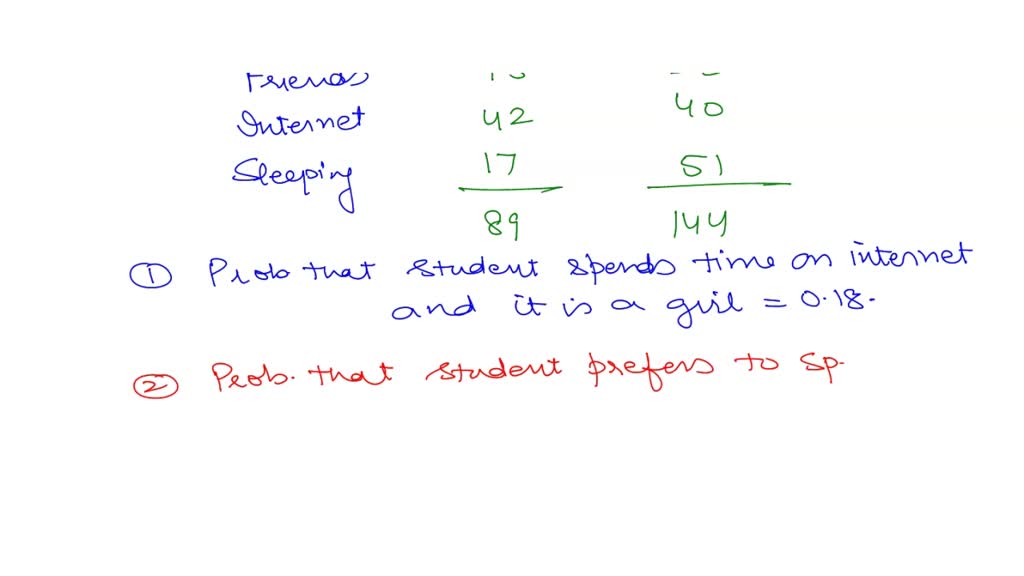 Friends
Internet 42 40
Sleeping 17 51
89 144
① Prob that student spends time on internet
and it is a girl = 0.18.
② Prob. that student prefers to sp.